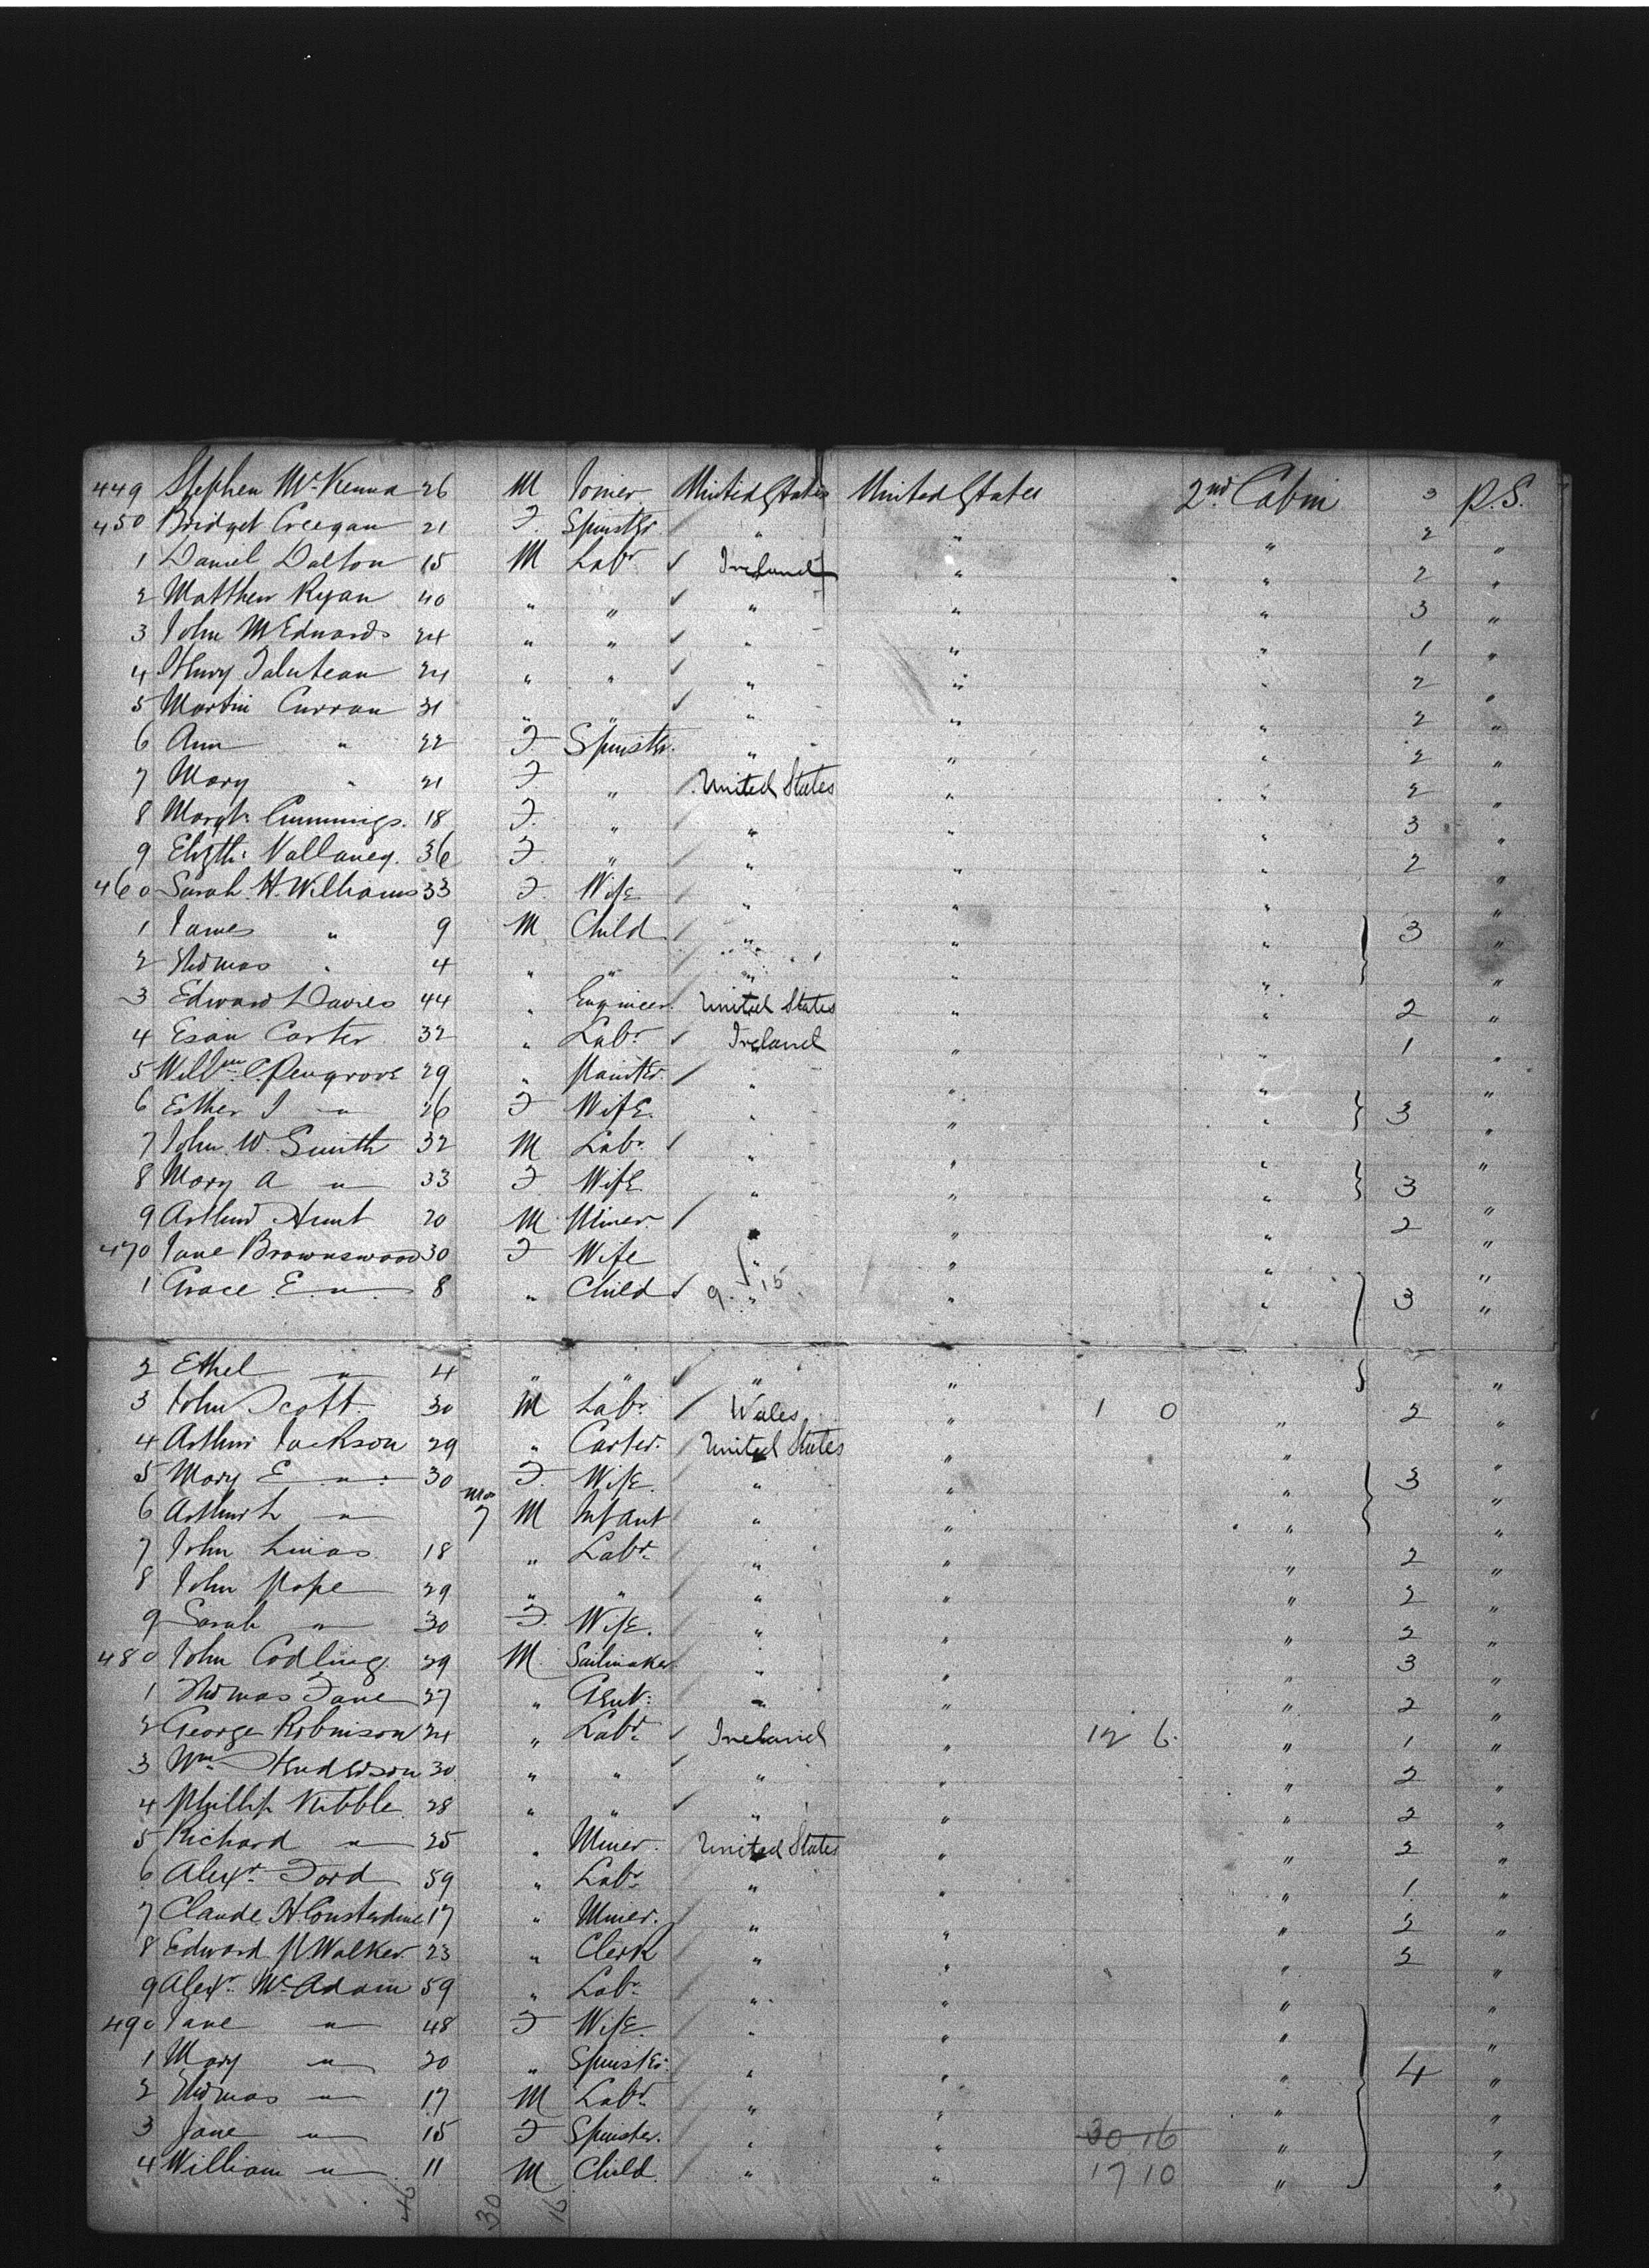 449 Stephen McKenna 26 M Joiner United States United States 2nd Cabin 3 P.S.
450 Bridget Creegan 21 F. Spinstr. " " " 2 "
1 Daniel Dalton 15 M Labr ✓ Ireland " " 2 "
2 Matthew Ryan 40 " " ✓ " " " 3 "
3 John M Edwards 24 " " ✓ " " " 1 "
4 Henry 24 " " ✓ " " " 2 "
5 Martin Curran 31 " " ✓ " " " 2 "
6 Ann " 22 F Spinstr. " " " 2 "
7 Mary " 21 F " United States " " 2 "
8 Margt. Cummings. 18 F. " " " " 3 "
9 Elizth: Vallaney. 36 F. " " " " 2 "
460 Sarah H. Williams 33 F. Wife " " " "
1 James " 9 M Child " " " 3 "
2 Thomas " 4 " " " " " "
3 Edward Davies 44 " Engineer United States " " 2 "
4 Esau Carter 32 " Labr ✓ Ireland " " 1 "
5 Willm. C. Pengrove 29 " Painter. ✓ " " " "
6 Esther J " 26 F Wife. " " " 3 "
7 John W. Smith 32 M Labr ✓ " " " "
8 Mary A " 33 F Wife " " " 3 "
9 Arthur Hunt 20 M Miner ✓ " " " 2 "
470 Jane Brownswood 30 F Wife " " " "
1 Grace E. " 8 " Child ✓ 9 15 " " " 3 "
2 Ethel " 4 " " ✓ " " "
3 John Scott 30 M Labr ✓ Wales " 1 0 " 2 "
4 Arthur Jackson 29 " Carter. United States " " "
5 Mary E " 30 F. Wife. " " " 3 "
6 Arthur L " mos 7 M Infant " " " "
7 John Linas 18 " Labr " " " 2 "
8 John Pope 29 " " " " " 2 "
9 Sarah " 30 F. Wife. " " " 2 "
480 John Codling 29 M Sailmaker " " " 3 "
1 Thomas Fane 27 " Gent: " " " 2 "
2 George Robinson 24 " Labr ✓ Ireland " 12 6. " 1 "
3 Wm Henderson 30 " " ✓ " " " 2 "
4 Phillip Kibble 28 " " ✓ " " " 2 "
5 Richard " 25 " Miner. United States " " 2 "
6 Alexr. Ford 59 " Labr " " " 1 "
7 Claude H. Consterdine 17 " Miner. " " " 2 "
8 Edward P Walker 23 " Clerk " " " 2 "
9 Alexr. McAdam 59 " Labr " " " "
490 Jane " 48 F Wife. " " " "
1 Mary " 20 " Spinster. " " " 4 "
2 Thomas " 17 M Labr " " " "
3 Jane " 15 F Spinster. " " 30 16 " "
4 William " 11 M Child. " " 17 10 " "
46 30 16